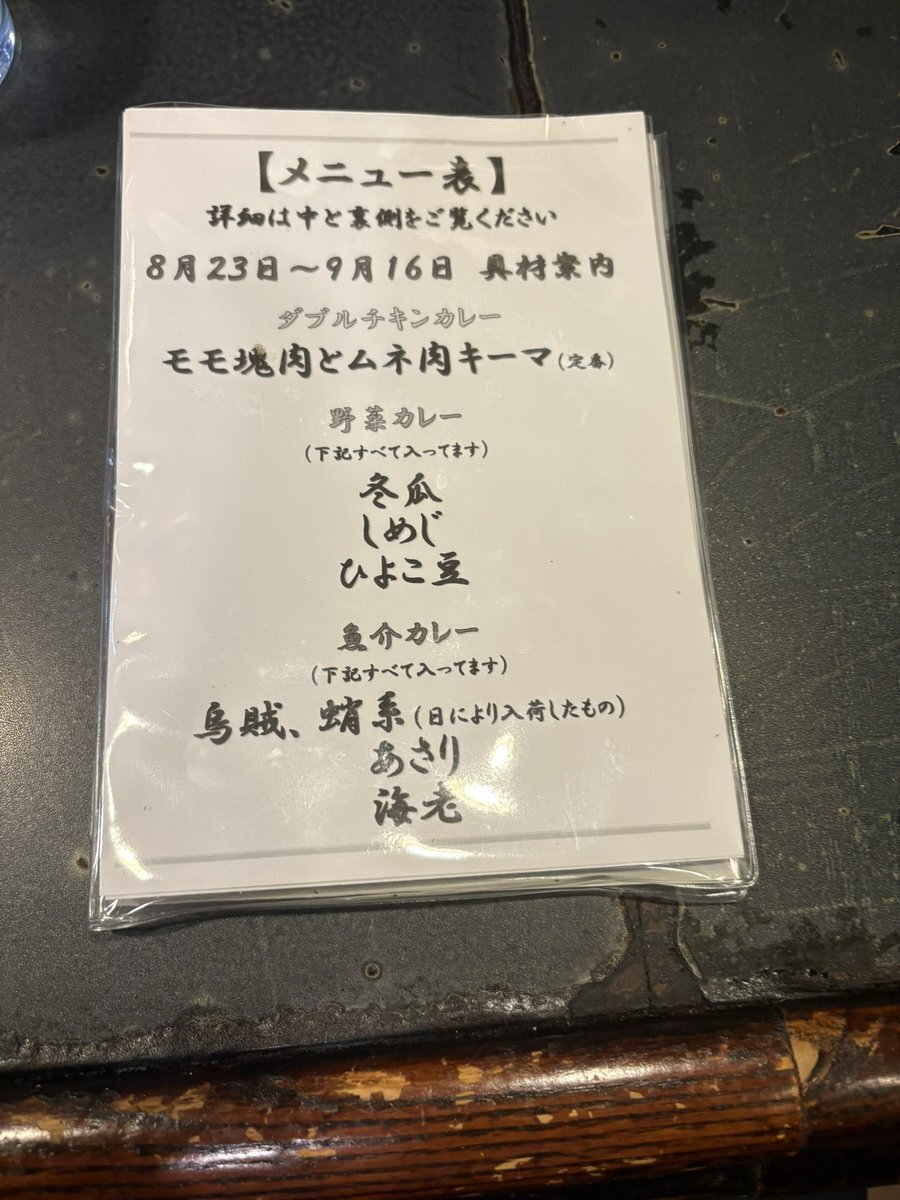 【メニュー表】
詳細は中と裏側をご覧ください
8月23日～9月16日 具材案内
ダブルチキンカレー
モモ塊肉とムネ肉キーマ(定番)
野菜カレー
(下記すべて入ってます)
冬瓜
しめじ
ひよこ豆
魚介カレー
(下記すべて入ってます)
烏賊、蛸系(日により入荷したもの)
あさり
海老